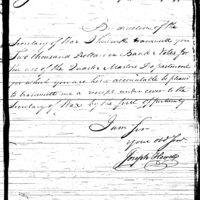 By direction of the
Secretary of War I herewith transmit you
two thousand Dollars in Bank Notes for
the use of the Quarter Masters Department
for which you are held accountable & please
to transmit me a receipt under cover to the
Secretary of War by the first opportunity
I am Sir
Your obt Servt
Joseph Howell